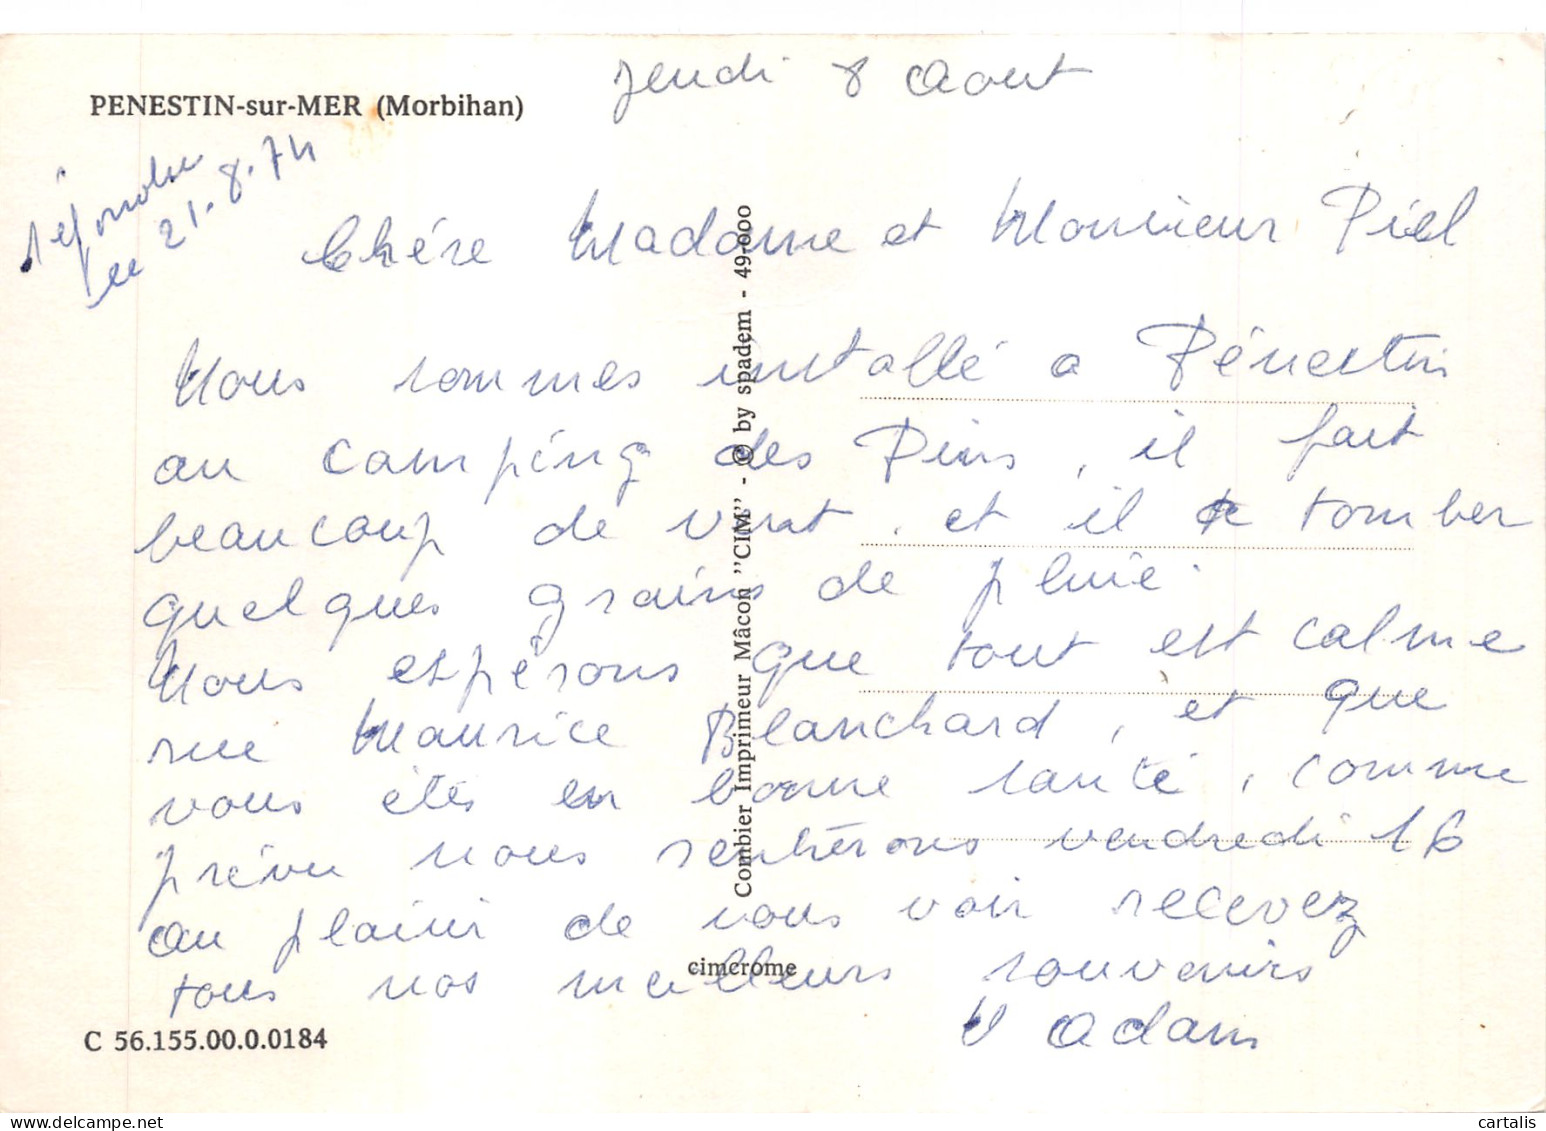 Jeudi 8 Aout
PENESTIN-sur-MER (Morbihan)
répondu
le 21.8.74
Chére Madame et Monsieur Piel
Nous sommes installé a Pénestin
au camping des Pins, il fait
beaucoup de vent. et il tomber
quelques grains de pluie.
Nous espérons que tout est calme
rue Maurice Blanchard, et que
vous étés en bonne santé, comme
prévu nous rentrérons vendredi 16
au plaisir de vous voir recevez
tous nos meilleurs souvenirs
adam
Combier Imprimeur Mâcon "CIM" - © by spadem - 49-000
cimcrome
C 56.155.00.0.0184
cartalis.com